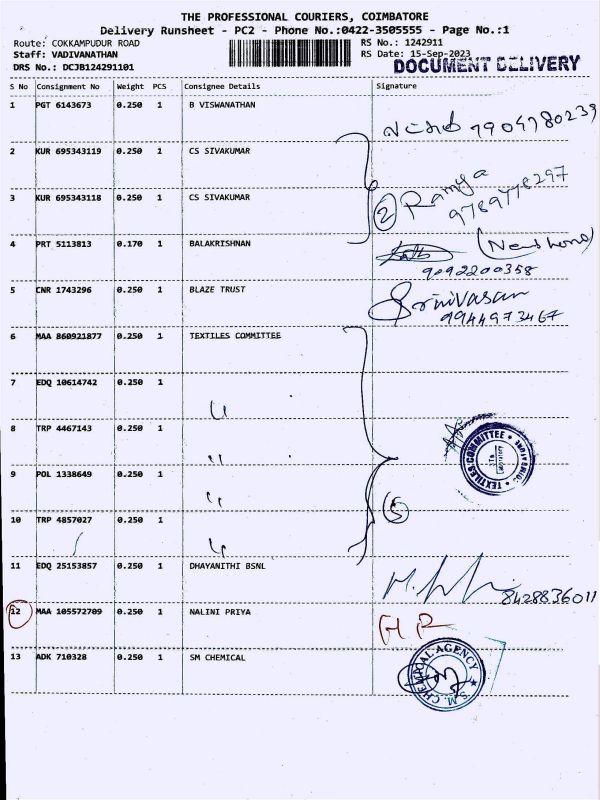 THE PROFESSIONAL COURIERS, COIMBATORE
Delivery Runsheet - PC2 - Phone No.:0422-3505555 - Page No.:1
Route: COKKAMPUDUR ROAD
RS No.: 1242911
Staff: VADIVANATHAN
RS Date: 15-Sep-2023
DRS No.: DCJB124291101
DOCUMENT DELIVERY
S No Consignment No Weight PCS Consignee Details Signature
1 PGT 6143673 0.250 1 B VISWANATHAN
7904980239
2 KUR 695343119 0.250 1 CS SIVAKUMAR
3 KUR 695343118 0.250 1 CS SIVAKUMAR
2 Ramya
9789778297
4 PRT 5113813 0.170 1 BALAKRISHNAN
9092200358
5 CNR 1743296 0.250 1 BLAZE TRUST
Srinivasan
9944973467
6 MAA 860921877 0.250 1 TEXTILES COMMITTEE
7 EDQ 10614742 0.250 1
8 TRP 4467143 0.250 1
TEXTILES COMMITTEE
9 POL 1338649 0.250 1
10 TRP 4857027 0.250 1
5
11 EDQ 25153857 0.250 1 DHAYANITHI BSNL
8428836011
12 MAA 105572709 0.250 1 NALINI PRIYA
13 ADK 710328 0.250 1 SM CHEMICAL
S.M. CHEMICAL AGENCY